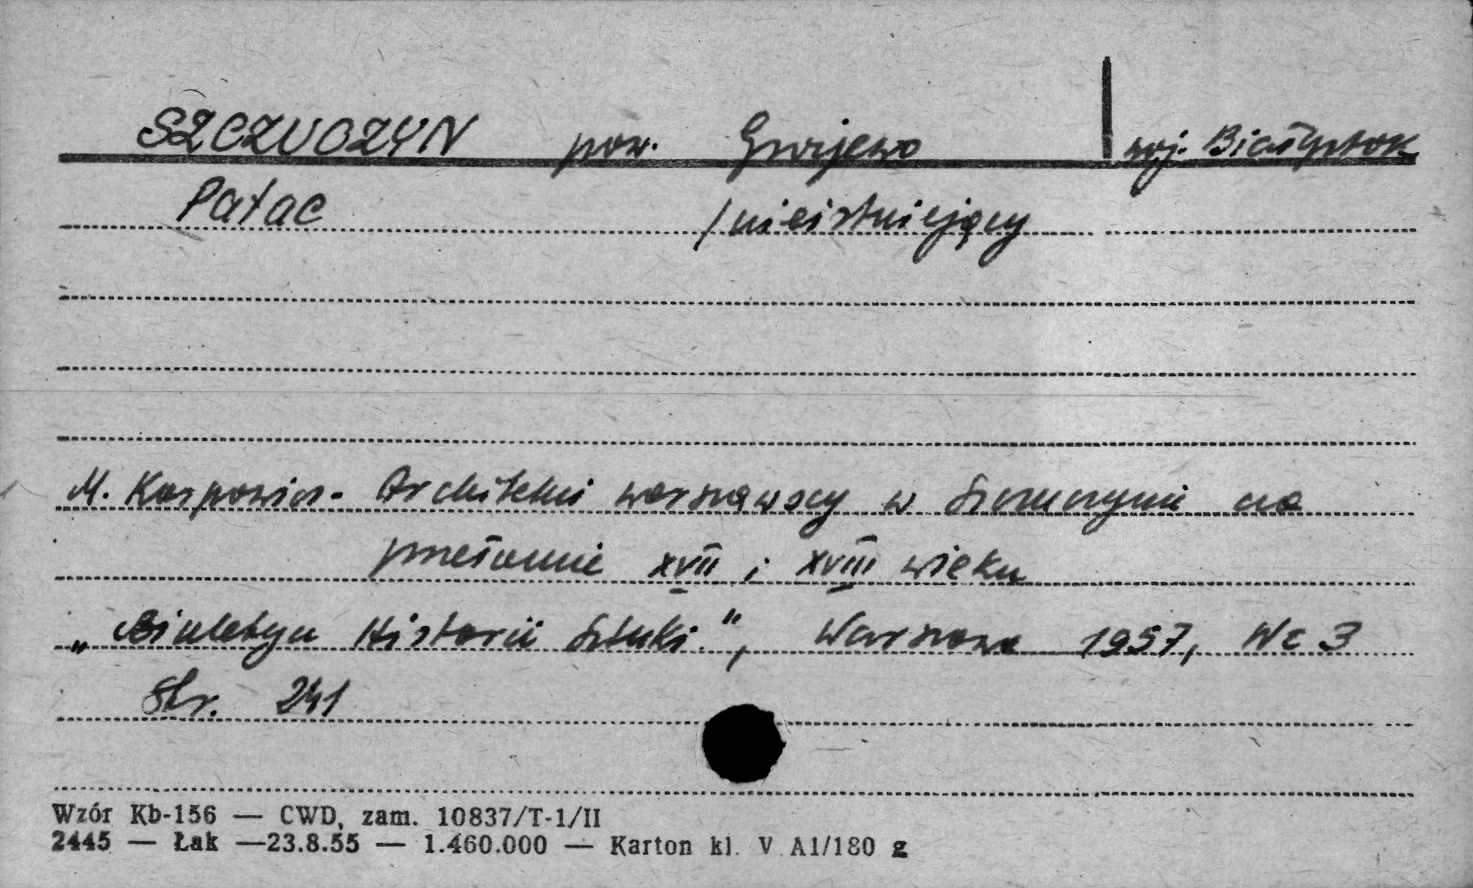 SZCZUCZYN pow. Grajewo woj. Białystok
Pałac /nieistniejący
M. Karpowicz - Architekci warszawscy w Szczuczynie na
przełomie XVII i XVIII wieku
„Biuletyn Historii Sztuki.", Warszawa 1957, Nr 3
Str. 241
Wzór Kb-156 — CWD, zam. 10837/T-1/II
2445 — Łak —23.8.55 — 1.460.000 — Karton kl. V A1/180 g